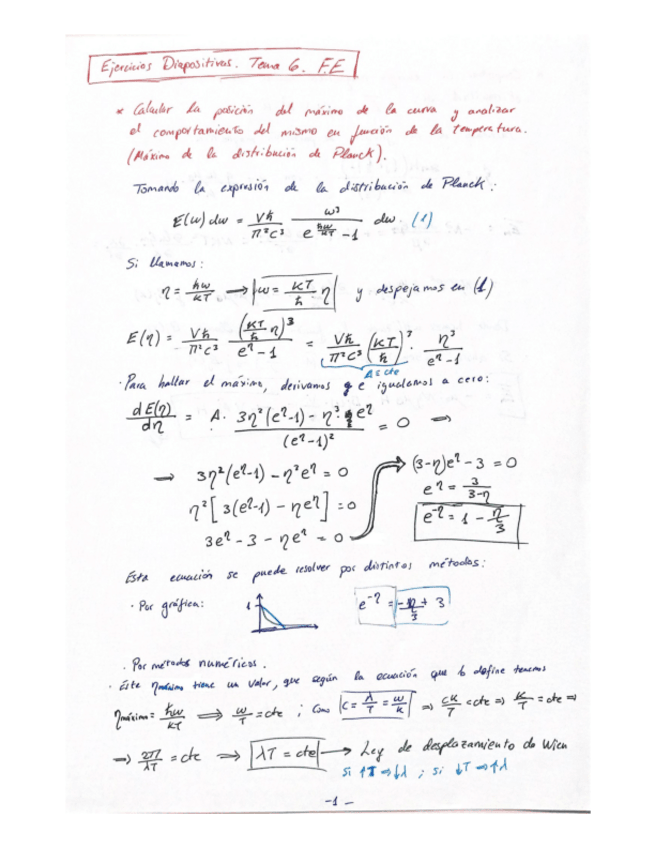 Ejercicios Diapositivas. Tema 6. F.E
* Calcular la posición del máximo de la curva y analizar
el comportamiento del mismo en función de la temperatura.
(Máximo de la distribución de Planck).
Tomando la expresión de la distribución de Planck:
E(ω)dω = Vħ/π²c³ ω³/(e^(ħω/KT) - 1) dω. (1)
Si llamamos:
η = ħω/KT → ω = KT/ħ η y despejamos en (1)
E(η) = Vħ/π²c³ (KT/ħ η)³/(e^η - 1) = Vħ/π²c³ (KT/ħ)³ · η³/(e^η - 1)
A ≡ cte
· Para hallar el máximo, derivamos e igualamos a cero:
dE(η)/dη = A · (3η²(e^η - 1) - η³ · e^η)/(e^η - 1)² = 0 ⇒
→ 3η²(e^η - 1) - η³e^η = 0
η²[3(e^η - 1) - ηe^η] = 0
3e^η - 3 - ηe^η = 0
(3-η)e^η - 3 = 0
e^η = 3/(3-η)
e^-η = 1 - η/3
Esta ecuación se puede resolver por distintos métodos:
· Por gráfica: 1 e^-η = -η/3 + 3
· Por métodos numéricos.
· Este ηmáximo tiene un valor, que según la ecuación que lo define tenemos
ηmáximo = ħω/KT ⇒ ω/T = cte ; Como c = λ/T = ω/K ⇒ cK/T = cte ⇒ K/T = cte ⇒
⇒ 2π/λT = cte ⇒ λT = cte → Ley de desplazamiento de Wien
si ↑T ⇒ ↓λ ; si ↓T ⇒ ↑λ
-1-